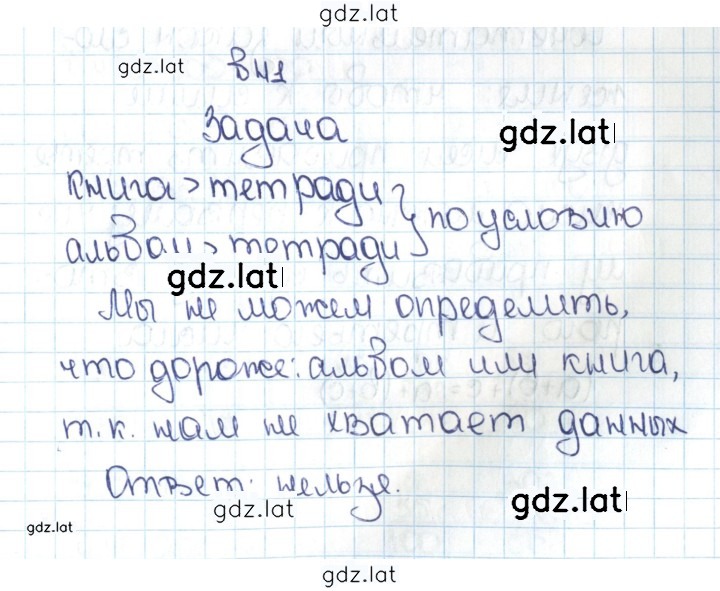 gdz.lat
gdz.lat
в41
Задача
gdz.lat
книга > тетради } по условию
альбом > тотради
gdz.lat
Мы не можем определить,
что дороже: альбом или книга,
т.к. нам не хватает данных
Ответ: нельзя.
gdz.lat
gdz.lat
gdz.lat
gdz.lat